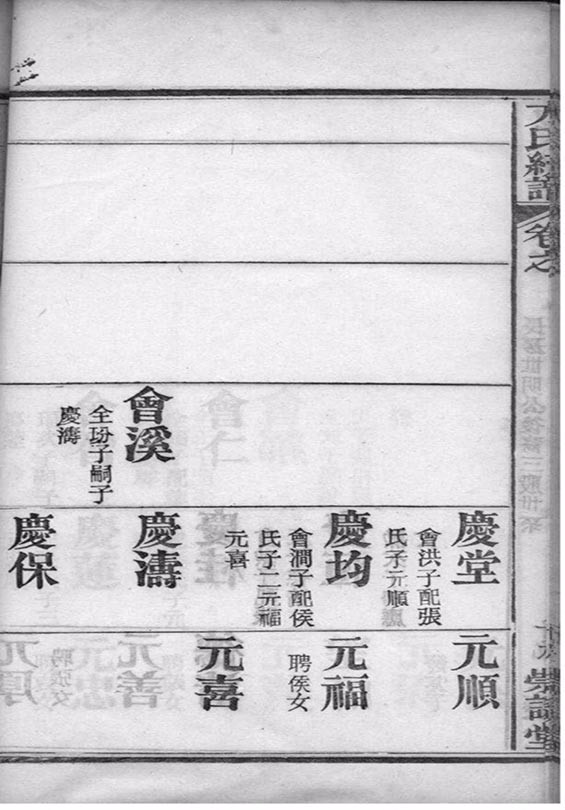 卷之
會溪
全玢子嗣子
慶濤
慶堂
會洪子配張
氏子元順
慶均
會澗子配侯
氏子二元福
元喜
慶濤
慶保
元順
元福
聘侯女
元喜